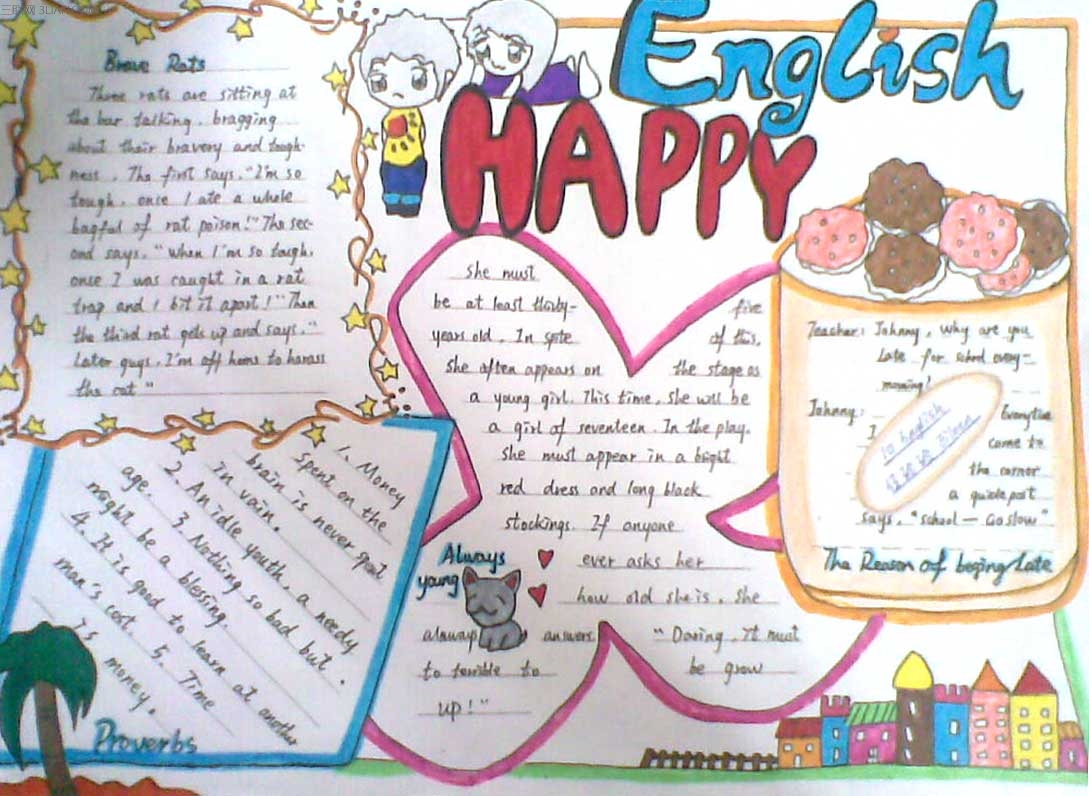 English
HAPPY
Brave Rats
Three rats are sitting at
the bar talking, bragging
about their bravery and tough-
ness. The first says, "I'm so
tough, once I ate a whole
bagful of rat poison!" The sec-
ond says, "When I'm so tough,
once I was caught in a rat
trap and I bit it apart!" Then
the third rat gets up and says, "
Later guys, I'm off home to harass
the cat"
1. Money
Spent on the
brain is never spent
in vain.
2. An idle youth, a needy
age. 3. Nothing so bad but
might be a blessing.
4. It is good to learn at another
man's cost. 5. Time
is money.
Proverbs
She must
be at least thirty- five
years old. In spite of this,
she often appears on the stage as
a young girl. This time, she will be
a girl of seventeen. In the play,
she must appear in a bright
red dress and long black
stockings. If anyone
ever asks her
how old she is, she
always answers "Daring, it must
to terrible to be grow
up!"
Always
young
Teacher: Johnny, why are you
late for school every-
morning!
Johnny: Everytime
I come to
the corner
a guidepost
says, "School — Go slow"
The Reason of beging Late